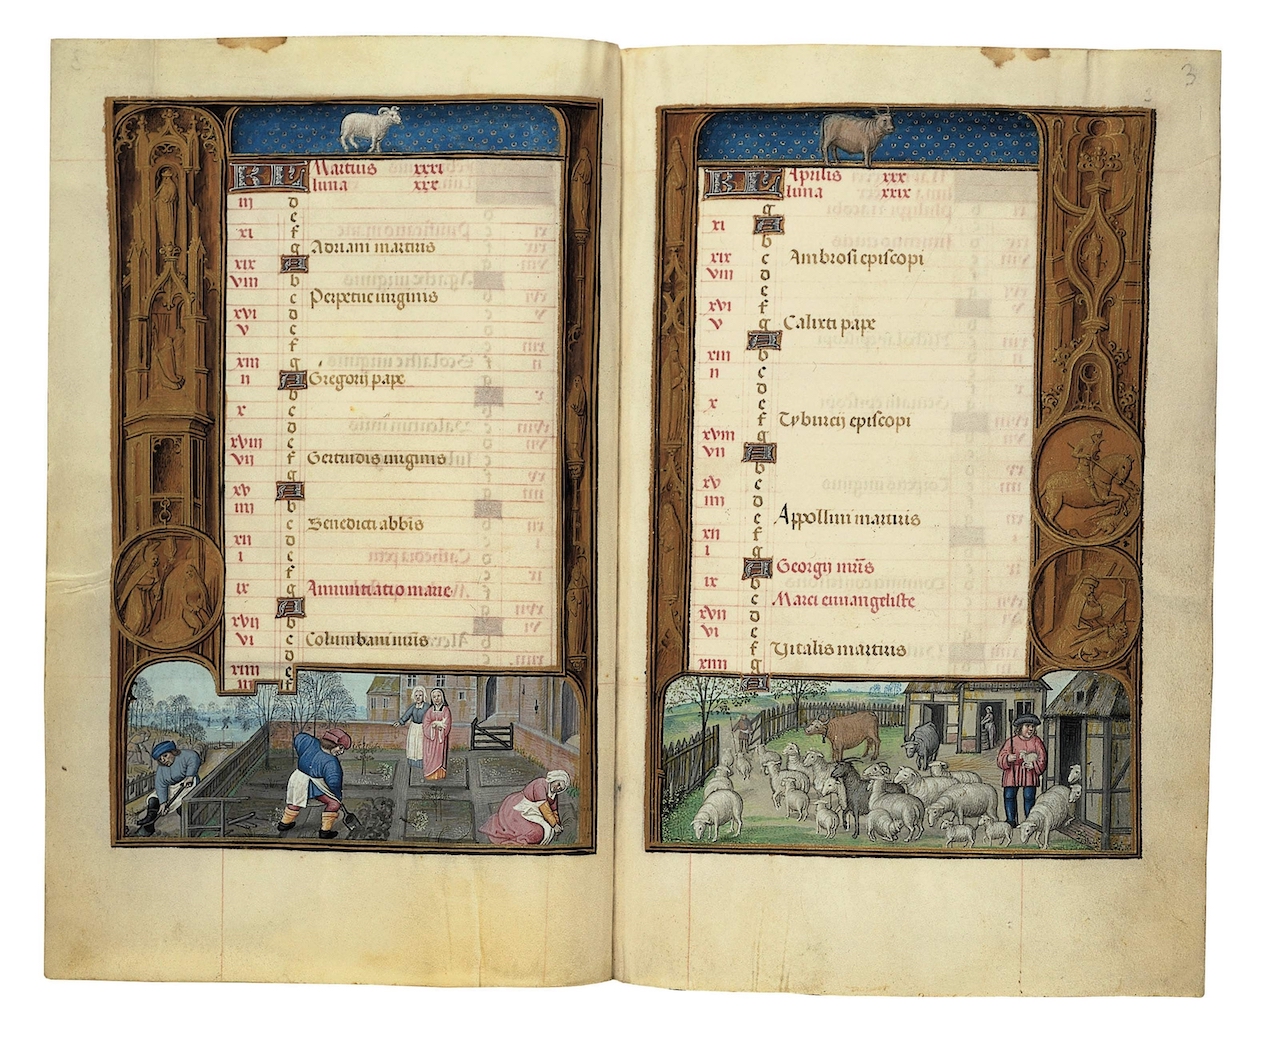 KL Martius xxxi
luna xxx
iii d
e
xi f
g Adriani martiris
xix A
viii b
c Perpetue uirginis
xvi d
v e
f
xiii g
ii A Gregorij pape
b
x c
d
xviii e
vii f Gertudis uirginis
g
xv A
iiii b
c Benedicti abbis
xii d
i e
f
ix g Annuntiatio marie
A
xvii b
vi c Columbani mris
d
xiiii e
iii f
3
KL Aprilis xxx
luna xxix
g
xi A
b
xix c Ambrosi episcopi
viii d
e
xvi f
v g Calixti pape
A
xiii b
ii c
d
x e
f Tyburcij episcopi
xviii g
vii A
b
xv c
iiii d
e Appollini martiris
xii f
i g
A Georgij mris
ix b
c Marci euuangeliste
xvii d
vi e
f Vitalis martiris
xiiii g
A